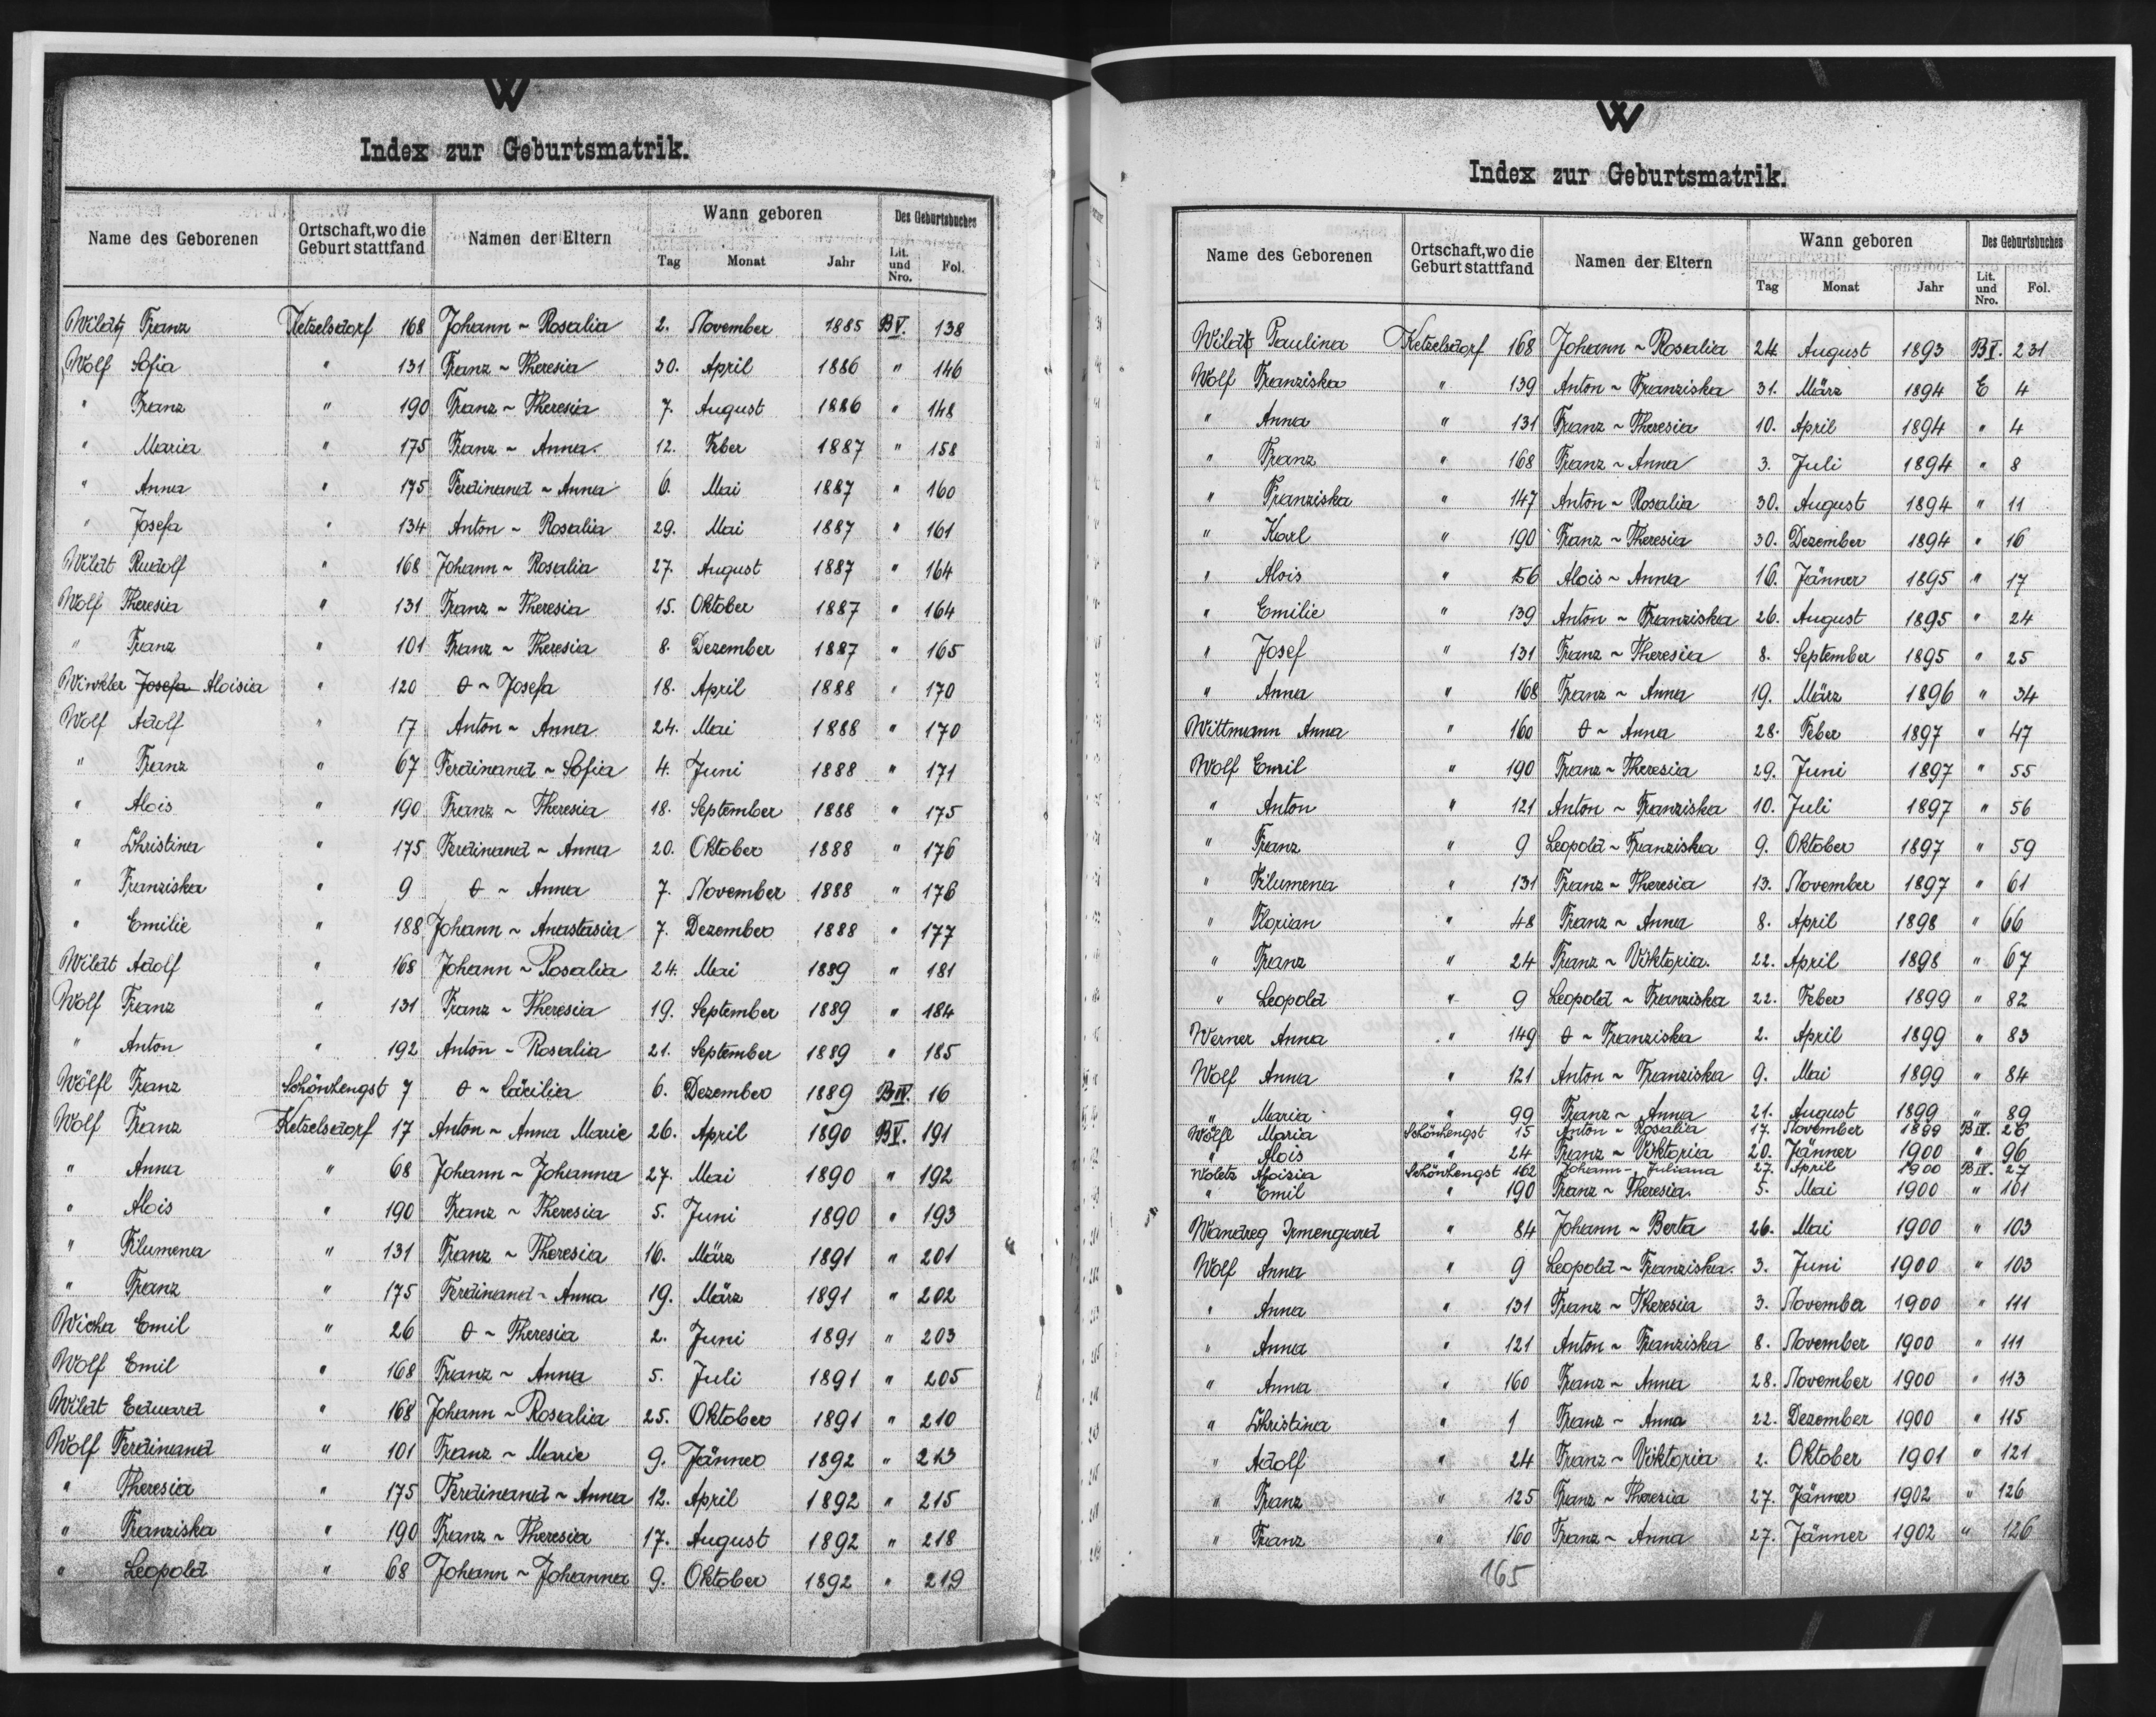 W
Index zur Geburtsmatrik.
Name des Geborenen Ortschaft, wo die Geburt stattfand Namen der Eltern Wann geboren Des Geburtsbuches
Tag Monat Jahr Lit. und Nro. Fol.
Wilaty Franz Ketzelsdorf 168 Johann ~ Rosalia 2. November 1885 B V. 138
Wolf Sofia " 131 Franz ~ Theresia 30. April 1886 " 146
" Franz " 190 Franz ~ Theresia 7. August 1886 " 148
" Maria " 175 Franz ~ Anna 12. Feber 1887 " 158
" Anna " 175 Ferdinand ~ Anna 6. Mai 1887 " 160
" Josefa " 134 Anton ~ Rosalia 29. Mai 1887 " 161
Wilat Rudolf " 168 Johann ~ Rosalia 27. August 1887 " 164
Wolf Theresia " 131 Franz ~ Theresia 15. Oktober 1887 " 164
" Franz " 101 Franz ~ Theresia 8. Dezember 1887 " 165
Winkler Josefa Aloisia " 120 θ ~ Josefa 18. April 1888 " 170
Wolf Adolf " 17 Anton ~ Anna 24. Mai 1888 " 170
" Franz " 67 Ferdinand ~ Sofia 4. Juni 1888 " 171
" Alois " 190 Franz ~ Theresia 18. September 1888 " 175
" Christina " 175 Ferdinand ~ Anna 20. Oktober 1888 " 176
" Franziska " 9 θ ~ Anna 7. November 1888 " 176
" Emilie " 188 Johann ~ Anastasia 7. Dezember 1888 " 177
Wilat Adolf " 168 Johann ~ Rosalia 24. Mai 1889 " 181
Wolf Franz " 131 Franz ~ Theresia 19. September 1889 " 184
" Anton " 192 Anton ~ Rosalia 21. September 1889 " 185
Wölfl Franz Schönhengst 7 θ ~ Cäcilia 6. Dezember 1889 B IV. 16
Wolf Franz Ketzelsdorf 17 Anton ~ Anna Marie 26. April 1890 B V. 191
" Anna " 68 Johann ~ Johanna 27. Mai 1890 " 192
" Alois " 190 Franz ~ Theresia 5. Juni 1890 " 193
" Filumena " 131 Franz ~ Theresia 16. März 1891 " 201
" Franz " 175 Ferdinand ~ Anna 19. März 1891 " 202
Wicha Emil " 26 θ ~ Theresia 2. Juni 1891 " 203
Wolf Emil " 168 Franz ~ Anna 5. Juli 1891 " 205
Wilat Eduard " 168 Johann ~ Rosalia 25. Oktober 1891 " 210
Wolf Ferdinand " 101 Franz ~ Marie 9. Jänner 1892 " 213
" Theresia " 175 Ferdinand ~ Anna 12. April 1892 " 215
" Franziska " 190 Franz ~ Theresia 17. August 1892 " 218
" Leopold " 68 Johann ~ Johanna 9. Oktober 1892 " 219
W
Index zur Geburtsmatrik.
Name des Geborenen Ortschaft, wo die Geburt stattfand Namen der Eltern Wann geboren Des Geburtsbuches
Tag Monat Jahr Lit. und Nro. Fol.
Wilat Paulina Ketzelsdorf 168 Johann ~ Rosalia 24 August 1893 B V. 231
Wolf Franziska " 139 Anton ~ Franziska 31. März 1894 E 4
" Anna " 131 Franz ~ Theresia 10. April 1894 " 4
" Franz " 168 Franz ~ Anna 3. Juli 1894 " 8
" Franziska " 147 Anton ~ Rosalia 30. August 1894 " 11
" Karl " 190 Franz ~ Theresia 30. Dezember 1894 " 16
" Alois " 56 Alois ~ Anna 16. Jänner 1895 " 17
" Emilie " 139 Anton ~ Franziska 26. August 1895 " 24
" Josef " 131 Franz ~ Theresia 8. September 1895 " 25
" Anna " 168 Franz ~ Anna 19. März 1896 " 34
Wittmann Anna " 160 θ ~ Anna 28. Feber 1897 " 47
Wolf Emil " 190 Franz ~ Theresia 29. Juni 1897 " 55
" Anton " 121 Anton ~ Franziska 10. Juli 1897 " 56
" Franz " 9 Leopold ~ Franziska 9. Oktober 1897 " 59
" Filumena " 131 Franz ~ Theresia 13. November 1897 " 61
" Florian " 48 Franz ~ Anna 8. April 1898 " 66
" Franz " 24 Franz ~ Viktoria. 22. April 1898 " 67
" Leopold " 9 Leopold ~ Franziska 22. Feber 1899 " 82
Werner Anna " 149 θ ~ Franziska 2. April 1899 " 83
Wolf Anna " 121 Anton ~ Franziska 9. Mai 1899 " 84
" Maria " 99 Franz ~ Anna 21. August 1899 " 89
Wölfl Maria Schönhengst 15 Anton ~ Rosalia 17. November 1899 B IV. 26
" Alois " 24 Franz ~ Viktoria 20. Jänner 1900 " 96
Woletz Aloisia Schönhengst 162 Johann ~ Juliana 27. April 1900 B IV. 27
" Emil " 190 Franz ~ Theresia. 5. Mai 1900 " 101
Wandreg Irmengard " 84 Johann ~ Berta 26. Mai 1900 " 103
Wolf Anna " 9 Leopold ~ Franziska. 3. Juni 1900 " 103
" Anna " 131 Franz ~ Theresia 3. November 1900 " 111
" Anna " 121 Anton ~ Franziska 8. November 1900 " 111
" Anna " 160 Franz ~ Anna 28. November 1900 " 113
" Christina " 1 Franz ~ Anna 22. Dezember 1900 " 115
" Adolf " 24 Franz ~ Viktoria 2. Oktober 1901 " 121
" Franz " 125 Franz ~ Theresia 27. Jänner 1902 " 126
" Franz " 160 Franz ~ Anna 27. Jänner 1902 " 126
165